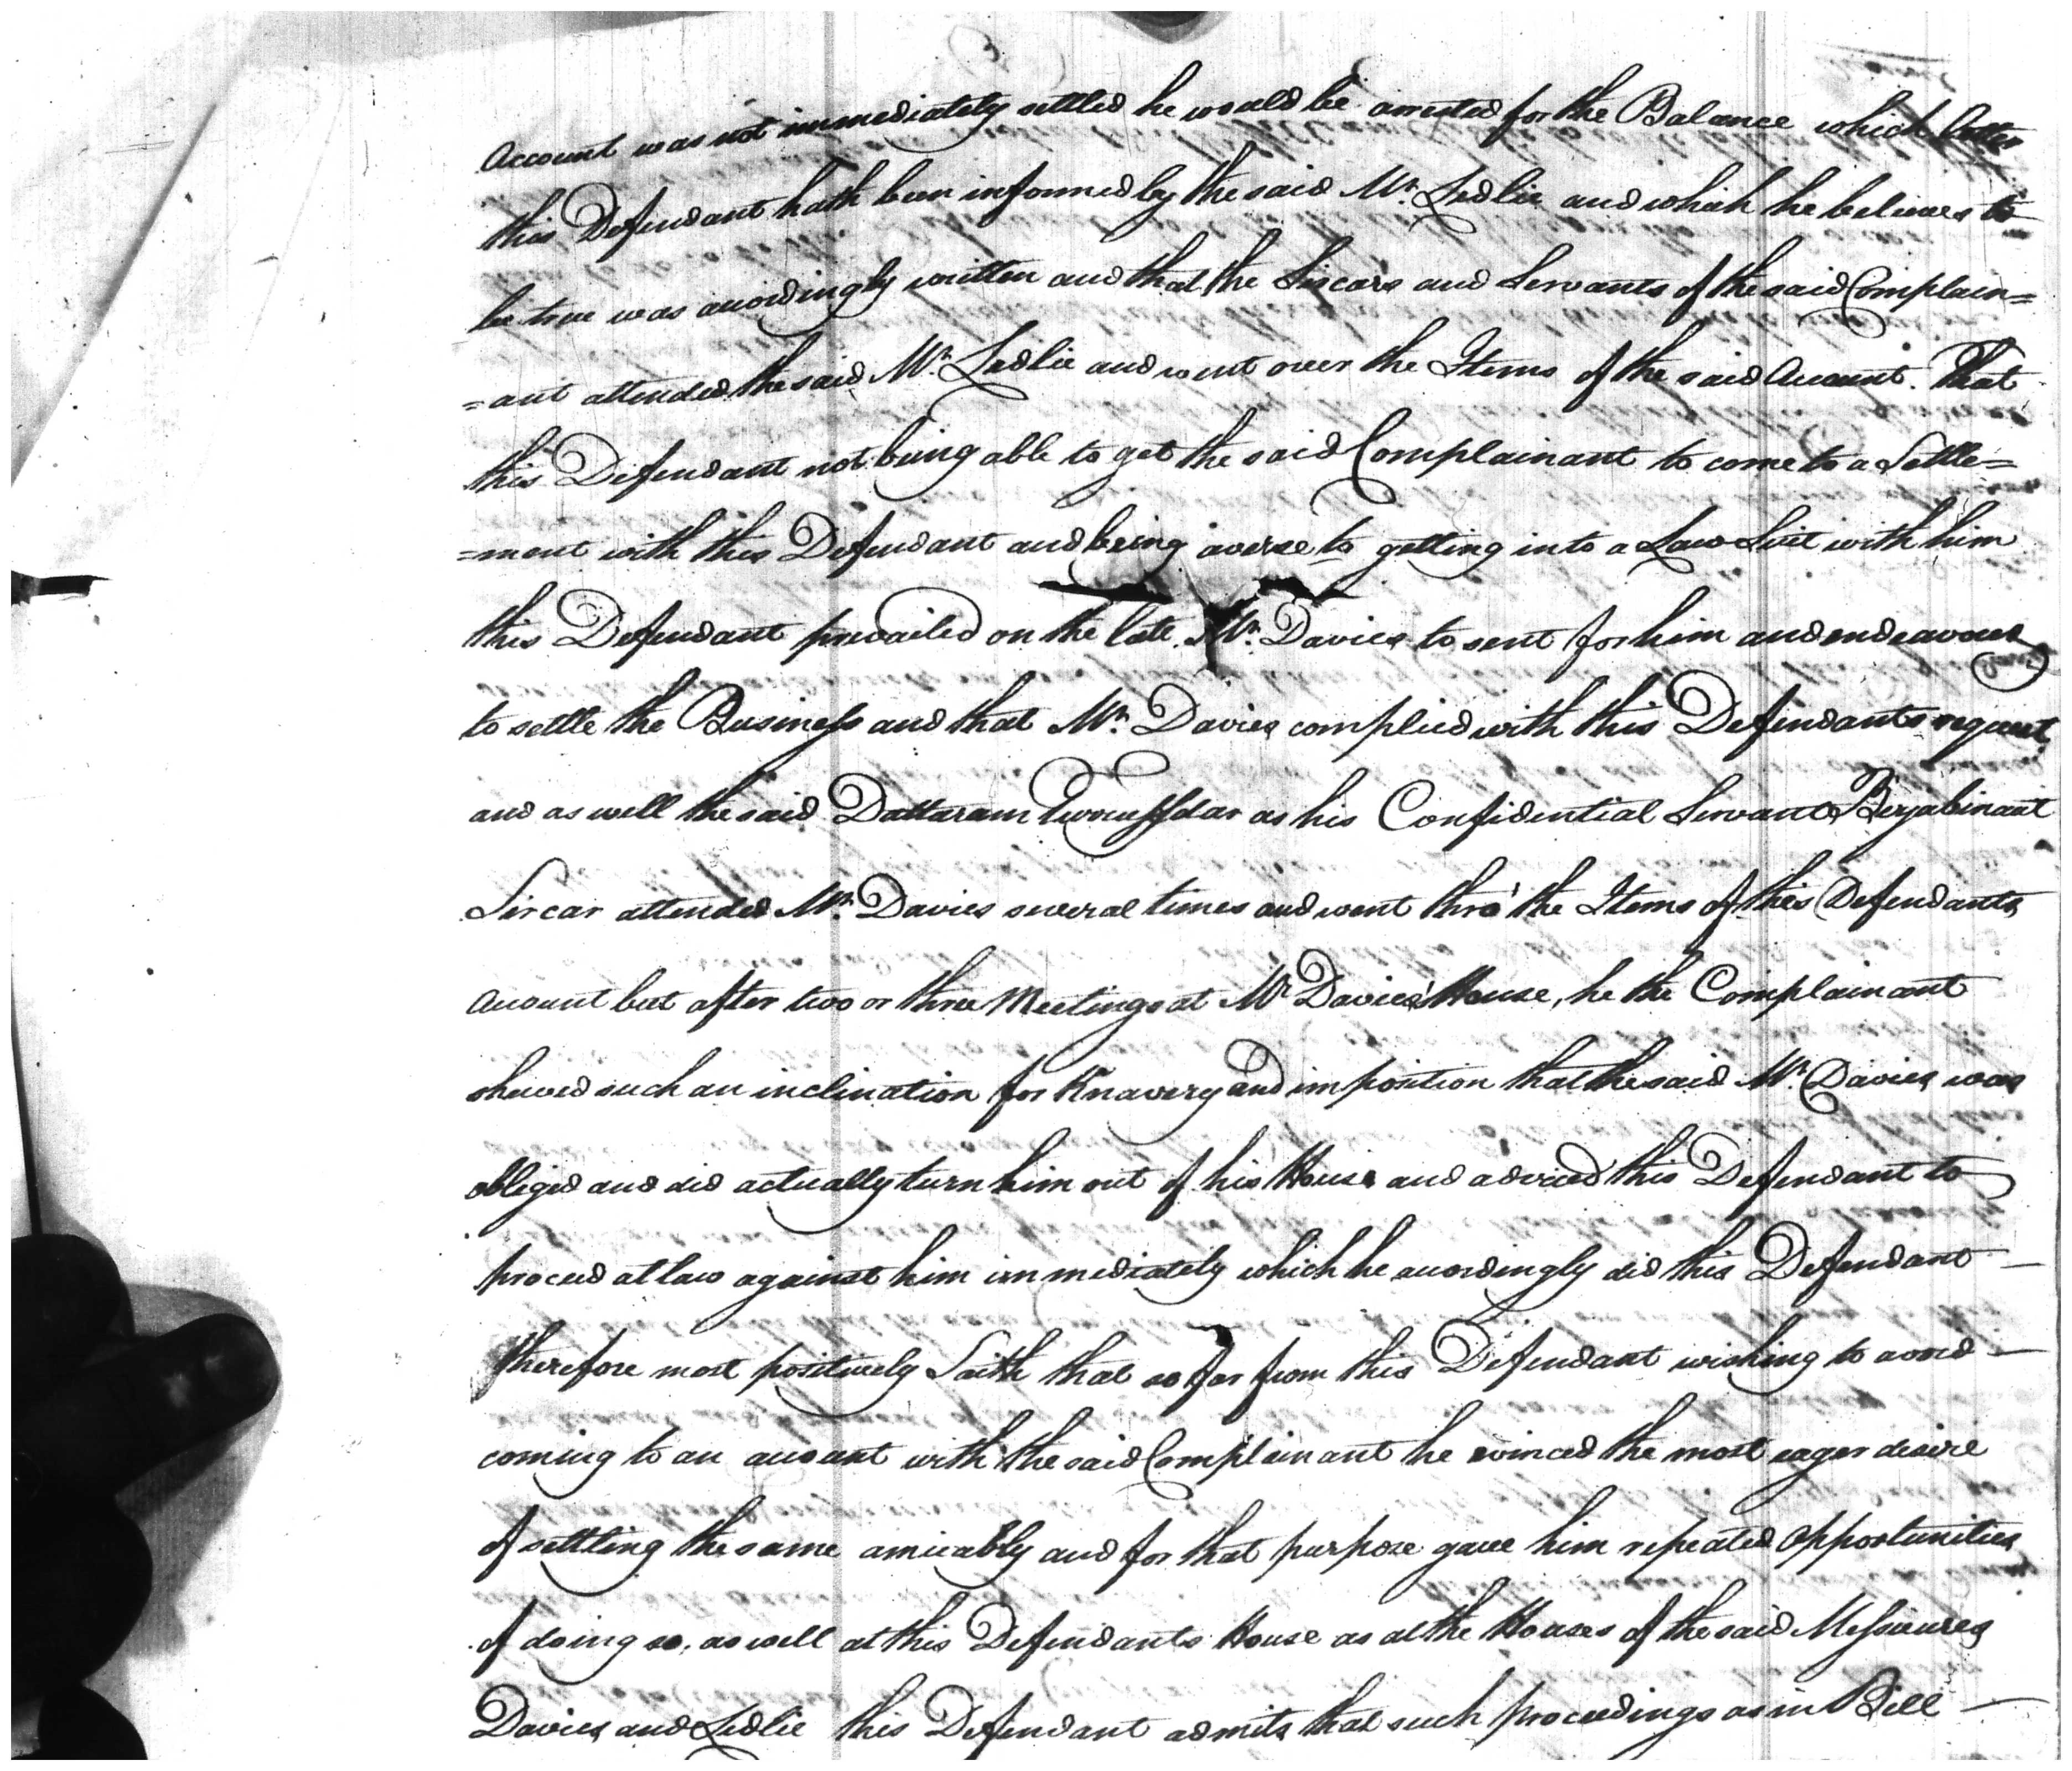 Account was not immediately settled he would be arrested for the Balance which Letter
this Defendant hath been informed by the said Mr. Ledlie and which he believes to
be true was accordingly written and that the Sircars and Servants of the said Complain=
=ant attended the said Mr. Ledlie and went over the Items of the said Account. That
this Defendant not being able to get the said Complainant to come to a Settle=
=ment with this Defendant and being averse to getting into a Law Suit with him
this Defendant prevailed on the late Mr. Davies to sent for him and endeavour
to settle the Business and that Mr. Davies complied with this Defendants request
and as well the said Dattaram as his Confidential Servant
Sircar attended Mr. Davies several times and went thro' the Items of this Defendants
Account but after two or three Meetings at Mr Davies' House, he the Complainant
shewed such an inclination for Knavery and imposition that the said Mr. Davies was
obliged and did actually turn him out of his House and advised this Defendant to
proceed at law against him immediately which he accordingly did this Defendant —
therefore most positively Saith that so far from this Defendant wishing to avoid —
coming to an account with the said Complainant he evinced the most eager desire
of settling the same amicably and for that purpose gave him repeated opportunities
of doing so, as well at this Defendants House as at the Houses of the said Messieures
Davies and Ledlie this Defendant admits that such proceedings as in Bill —